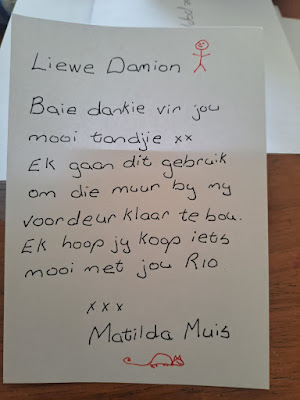 Liewe Damion
Baie dankie vir jou
mooi tandjie xx
Ek gaan dit gebruik
om die muur by my
voordeur klaar te bou.
Ek hoop jy koop iets
mooi met jou R10
xxx
Matilda Muis